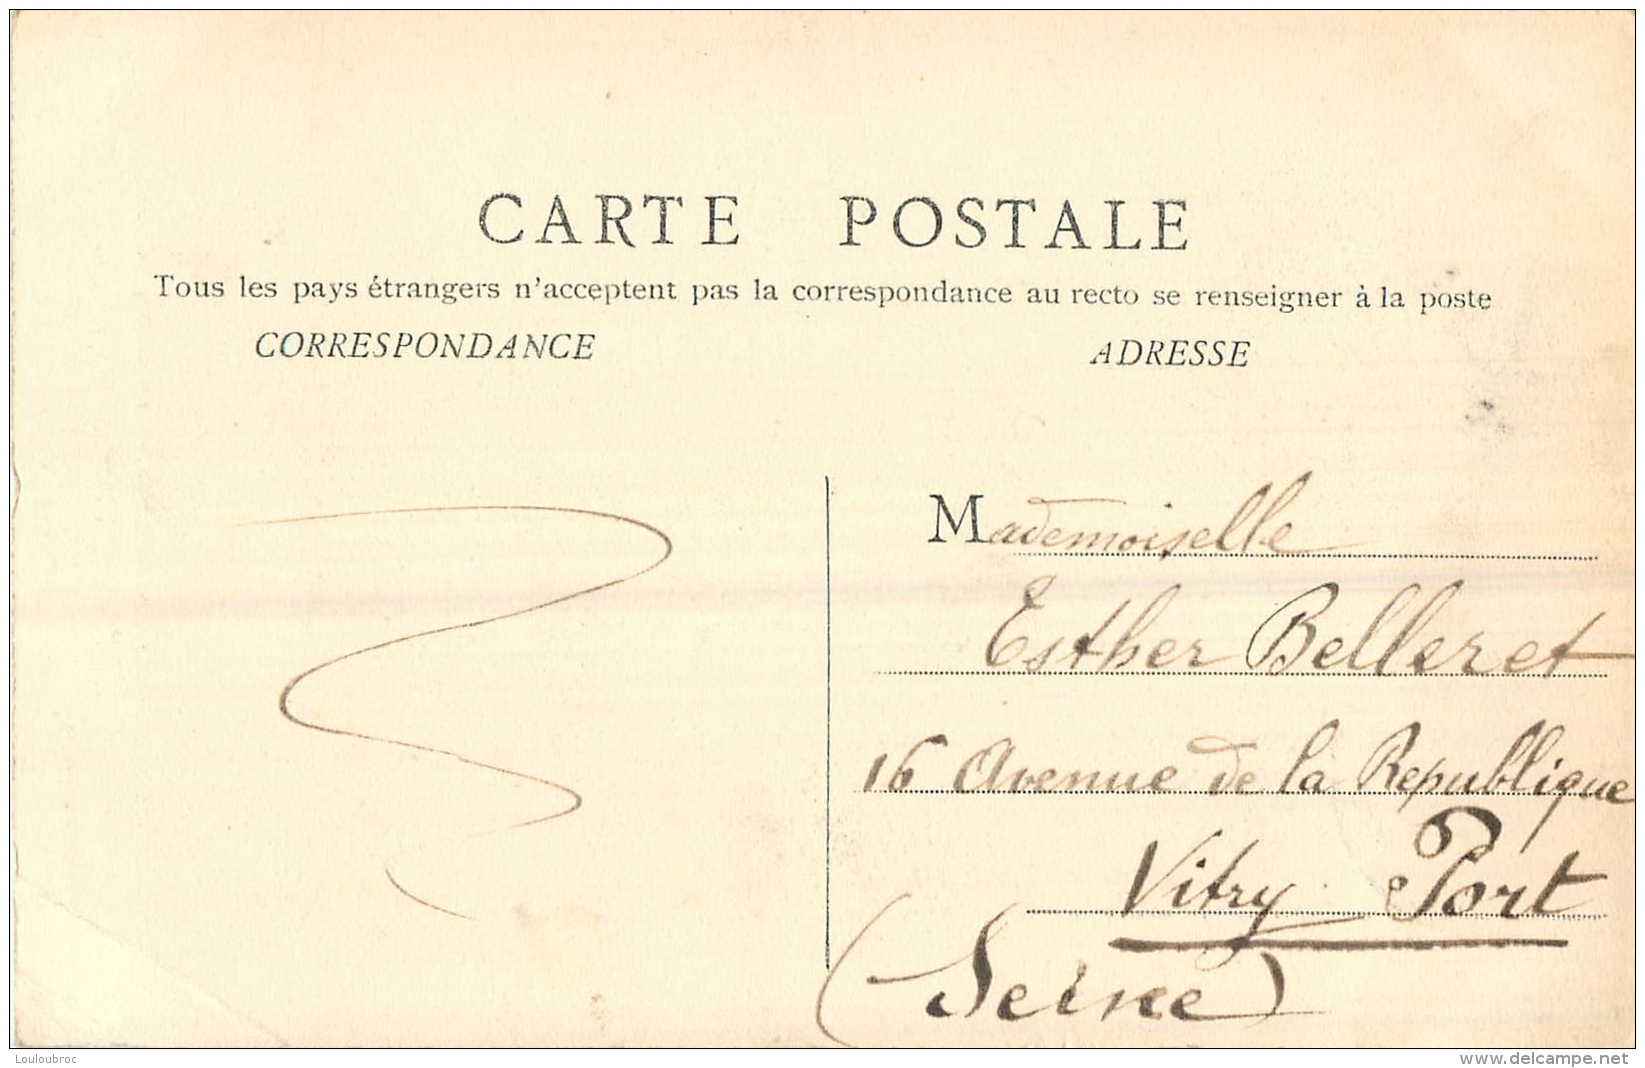 CARTE POSTALE
Tous les pays étrangers n'acceptent pas la correspondance au recto se renseigner à la poste
CORRESPONDANCE
ADRESSE
Mademoiselle
Esther Belleret
16 Avenue de la Republique
Vitry Port
(Seine)
Louloubroc
www.delcampe.net